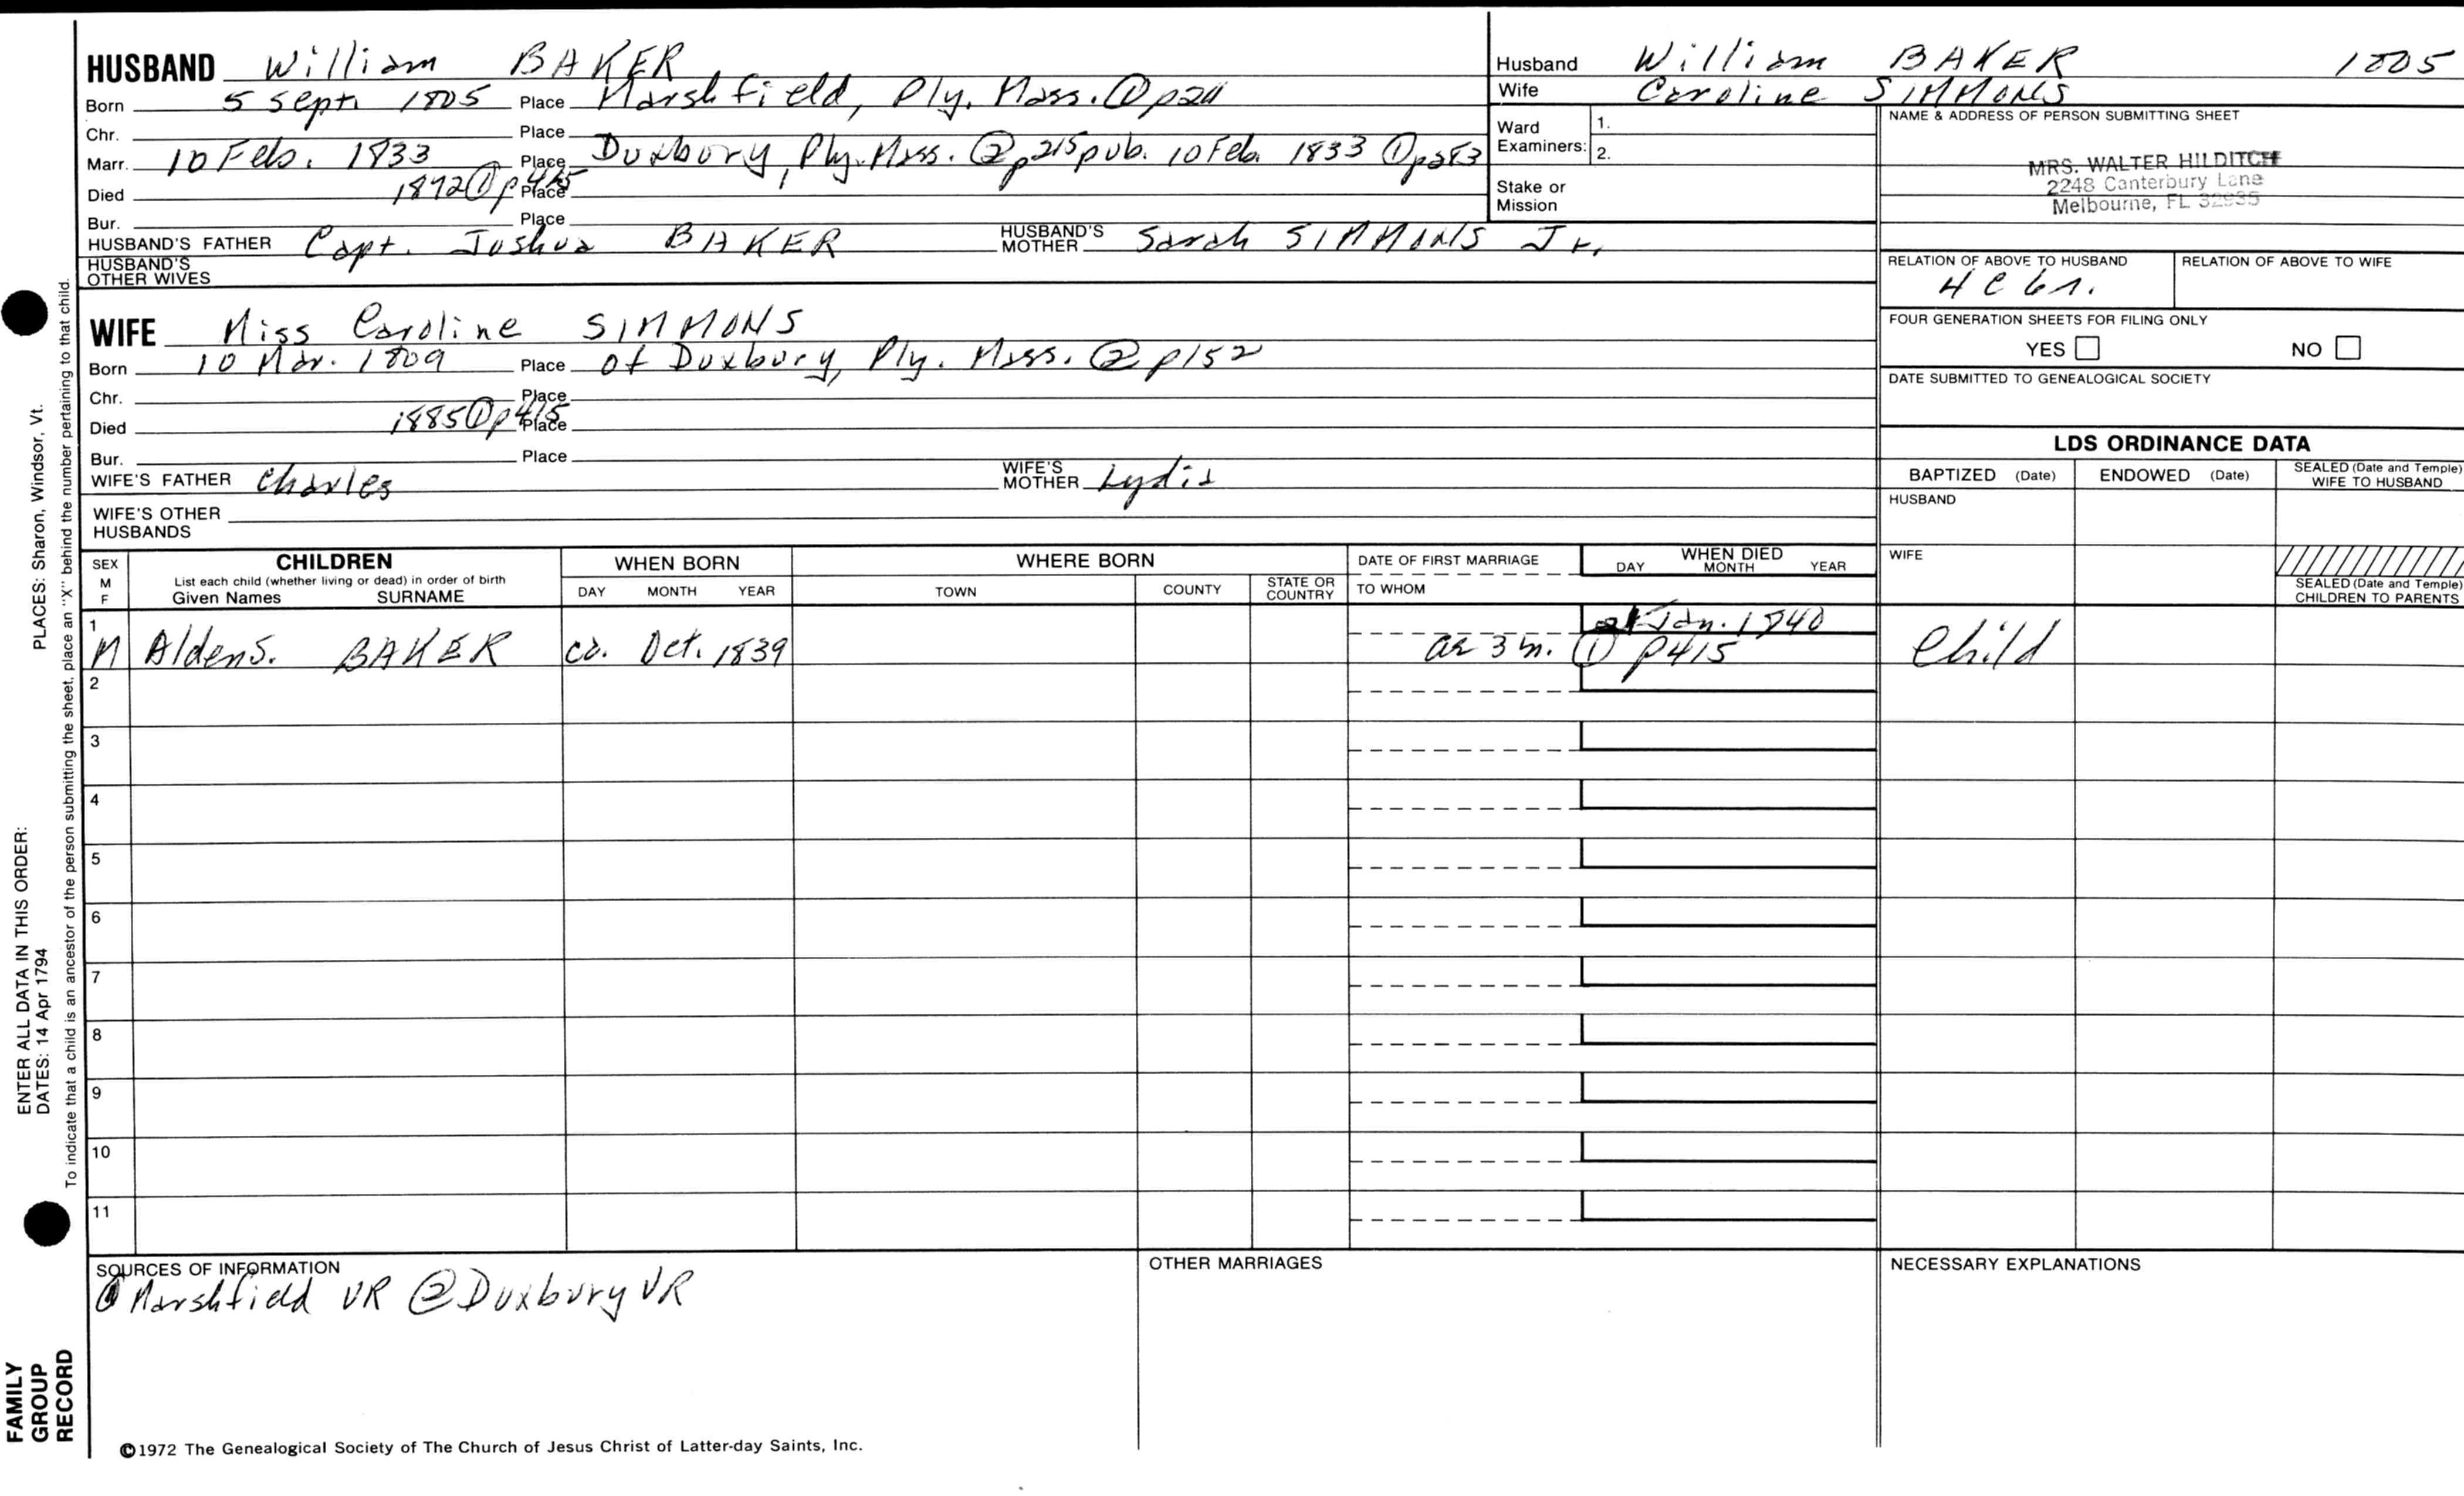 HUSBAND William BAKER
Born 5 Sept. 1805 Place Marshfield, Ply. Mass. ① p20
Chr. Place
Marr. 10 Feb. 1833 Place Duxbury, Ply. Mass. ② p215 pub. 10 Feb. 1833 ① p283
Died 1872 ① p415 Place
Bur. Place
HUSBAND'S FATHER Capt. Joshua BAKER HUSBAND'S MOTHER Sarah SIMMONS Jr.
HUSBAND'S OTHER WIVES
WIFE Miss Caroline SIMMONS
Born 10 Mar. 1809 Place of Duxbury, Ply. Mass. ② p152
Chr. Place
Died 1885 ① p415 Place
Bur. Place
WIFE'S FATHER Charles WIFE'S MOTHER Lydia
WIFE'S OTHER HUSBANDS
Husband William BAKER 1805
Wife Caroline SIMMONS
Ward Examiners: 1.
2.
Stake or Mission
NAME & ADDRESS OF PERSON SUBMITTING SHEET
MRS. WALTER HILDITCH
2248 Canterbury Lane
Melbourne, FL 32935
RELATION OF ABOVE TO HUSBAND RELATION OF ABOVE TO WIFE
4 C 6 r.
FOUR GENERATION SHEETS FOR FILING ONLY
YES NO
DATE SUBMITTED TO GENEALOGICAL SOCIETY
LDS ORDINANCE DATA
BAPTIZED (Date) ENDOWED (Date) SEALED (Date and Temple) WIFE TO HUSBAND
HUSBAND
WIFE
SEALED (Date and Temple) CHILDREN TO PARENTS
SEX M F
CHILDREN
List each child (whether living or dead) in order of birth
Given Names SURNAME
WHEN BORN
DAY MONTH YEAR
WHERE BORN
TOWN COUNTY STATE OR COUNTRY
DATE OF FIRST MARRIAGE
TO WHOM
WHEN DIED
DAY MONTH YEAR
1 Jan. 1840
M Alden S. BAKER ca. Oct. 1839 ae 3 m. ① p415 Child
2
3
4
5
6
7
8
9
10
11
SOURCES OF INFORMATION
① Marshfield VR ② Duxbury VR
OTHER MARRIAGES
NECESSARY EXPLANATIONS
©1972 The Genealogical Society of The Church of Jesus Christ of Latter-day Saints, Inc.
FAMILY GROUP RECORD
ENTER ALL DATA IN THIS ORDER:
DATES: 14 Apr 1794 PLACES: Sharon, Windsor, Vt.
To indicate that a child is an ancestor of the person submitting the sheet, place an "X" behind the number pertaining to that child.